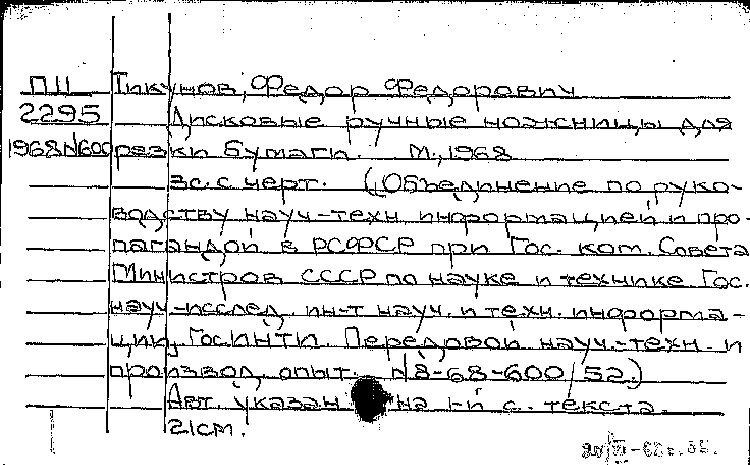 ПII Тикунов, Федор Федорович
2295 Дисковые ручные ножницы для
1968 N600 резки бумаги. М., 1968
3с. с черт. (Объединение по руко-
водству науч.-техн. информацией и про-
пагандой в РСФСР при Гос. ком. Совета
Министров СССР по науке и технике. Гос.
науч.-исслед. ин-т науч. и техн. информа-
ции, ГосИНТИ. Передовой науч.-техн. и
производ. опыт. N 8-68-600/52.)
Авт. указан на 1-й с. текста.
21см.